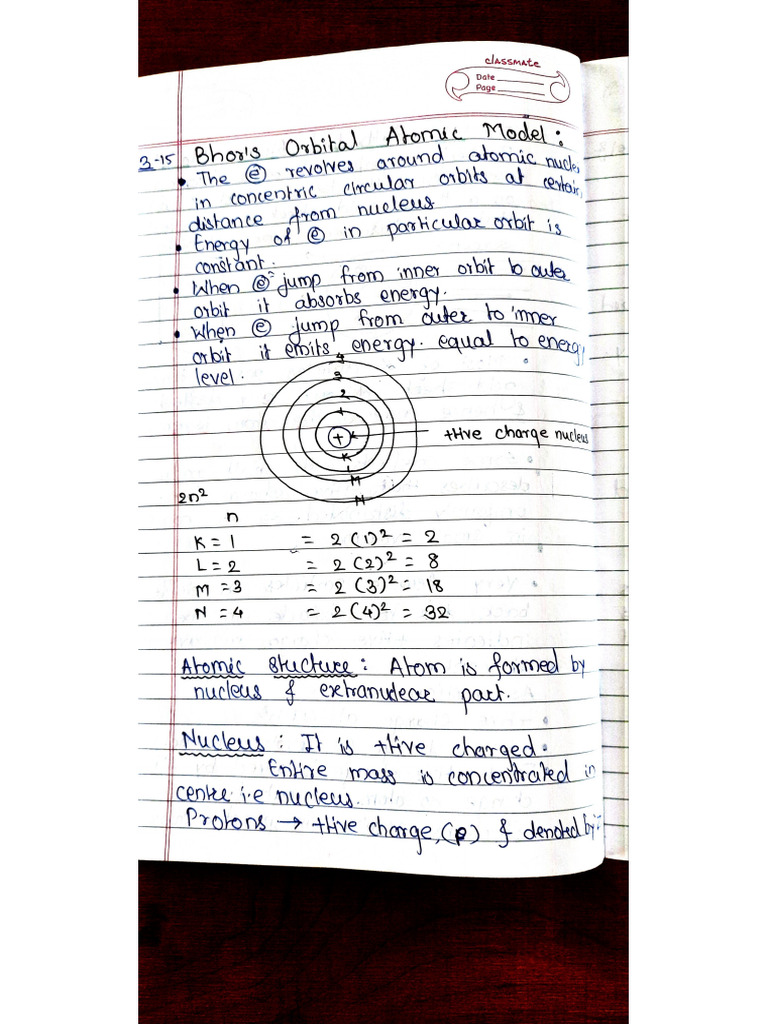 classmate
Date
Page
3-15 Bhor's Orbital Atomic Model :
• The ⓔ revolves around atomic nucle
in concentric circular orbits at certain
distance from nucleus
• Energy of ⓔ in particular orbit is
constant.
• When ⓔ jump from inner orbit to outer
orbit it absorbs energy.
• When ⓔ jump from outer to inner
orbit it emits energy. equal to energy
level.
4
3
2
1
+
+tive charge nucleus
K
L
M
N
2n²
n
K = 1 = 2(1)² = 2
L = 2 = 2(2)² = 8
M = 3 = 2(3)² = 18
N = 4 = 2(4)² = 32
Atomic Stucture : Atom is formed by
nucleus & extranuclear part.
Nucleus : It is +tive charged.
Entire mass is concentrated in
centre i.e nucleus.
Protons → +tive charge, (p) & denoted by :-